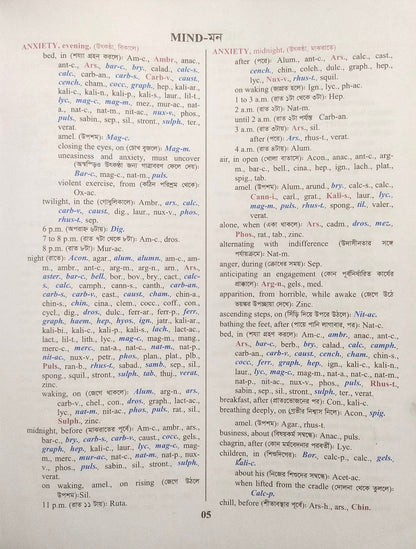 MIND-মন
ANXIETY, evening, (উৎকণ্ঠা, বিকালে)
bed, in (শয্যা গ্রহন করলে): Am-c., Ambr., anac.,
ant-c., Ars., bar-c., bry., calad., calc-s.,
calc., carb-an., carb-s., Carb-v., caust.,
cench., cham., cocc., graph., hep., kali-ar.,
kali-c., kali-n., kali-p., kali-s., laur., lil-t.,
lyc., mag-c., mag-m., mez., mur-ac., nat-
a., nat-c., nat-m., nit-ac., nux-v., phos.,
puls., sabin., sep., sil., stront., sulph., ter.,
verat.
amel. (উপশম): Mag-c.
closing the eyes, on (চোখ বুজলে): Mag-m.
uneasiness and anxiety, must uncover
Bar-c., mag-c., nat-m., puls.
violent exercise, from (কঠিন পরিশ্রম থেকে):
Ox-ac.
twilight, in the (গোধুলিকালে): Ambr., ars., calc.,
carb-v., caust., dig., laur., nux-v., phos.,
rhus-t., sep.
6 p.m. (অপরাহ্ন ৬টায়): Dig.
7 to 8 p.m. (রাত ৭টা থেকে ৮টা): Am-c., dros.
8 p.m. (রাত ৮টা): Mur-ac.
night (রাতে): Acon., agar., alum., alumn., am-c., am-
m., ambr., ant-c., arg-m., arg-n., arn., Ars.,
aster., bar-c., bell., bor., bov., bry., cact., calc-
s., calc., camph., cann-s., canth., carb-an.,
carb-s., carb-v., cast., caust., cham., chin-a.,
chin-s., chin., cina., clem., cocc., coff., con.,
cycl., dig., dros., dulc., ferr-ar., ferr-p., ferr.,
graph., haem., hep., hyos., ign., jatr., kali-ar.,
kali-bi., kali-c., kali-p., kali-s., lach., lact-ac.,
lact., lil-t., lith., lyc., mag-c., mag-m., mang.,
merc-c., merc., nat-a., nat-c., nat-m., nat-p.,
nit-ac., nux-v., petr., phos., plan., plat., plb.,
Puls., ran-b., rhus-t., sabad., samb., sep., sil.,
spong., squil., stront., sulph., tab., thuj., verat.,
zinc.
waking, on (জেগে থাকলে): Alum., arg-n., ars.,
carb-v., chel., con., dros., graph., lact-ac.,
lyc., nat-m., nit-ac., phos., puls., rat., sil.,
Sulph., zinc.
midnight, before (মাঝরাতের পূর্বে): Am-c., ambr., ars.,
bar-c., bry., carb-s., carb-v., caust., cocc., gels.,
graph., hep., kali-c., laur., lyc., mag-c., mag-
m., merc., mur-ac., nat-c., nat-m., nat-p., nux-
v., phos., puls., sabin., sil., stront., sulph.,
verat.
on waking, amel., on rising (জেগে উঠলে
উপশম):Sil.
11 p.m. (রাত ১১ টায়): Ruta.
ANXIETY, midnight, (উৎকণ্ঠা, মাঝরাতে)
after (পরে): Alum., ant-c., Ars., calc., cast.,
cench., chin., colch., dulc., graph., hep.,
lyc., Nux-v., rhus-t., squil.
on waking (জাগ্রত হলে): Ign., lyc., ph-ac.
1 to 3 a.m. (রাত ১টা থেকে ৩টা): Hep.
2 a.m. (রাত ২টা): Nat-c.
until 2 a.m. (রাত ২টা পর্যন্ত): Carb-an.
3 a.m. (রাত ৩টায়): Ars., sil.
after (পরে): Ars., rhus-t., verat.
4 a.m. (রাত ৪টায়): Alum.
air, in open (খোলা বাতাসে): Acon., anac., ant-c., arg-
m., bar-c., bell., cina., hep., ign., lach., plat.,
spig., tab.
amel. (উপশম): Alum., arund., bry., calc-s., calc.,
Cann-i., carl., grat., Kali-s., laur., lyc.,
mag-m., puls., rhus-t., spong., til., valer.,
verat.
alone, when (একা থাকলে): Ars., cadm., dros., mez.,
Phos., rat., tab., zinc.
alternating with indifference (উদাসীনতার সঙ্গে
পর্যায়ক্রমে): Nat-m.
anger, during (ক্রোধের সময়): Sep.
anticipating an engagement (কোন পূর্বনির্ধারিত কার্যের
Arg-n., gels., med.
apparition, from horrible, while awake (জেগে উঠে
ভয়ঙ্কর উপচ্ছায়া দেখে): Zinc.
ascending steps, on (সিঁড়ি দিয়ে উপরে উঠলে): Nit-ac.
bathing the feet, after (পায়ে পানি লাগাবার, পর): Nat-c.
bed, in (শয্যা গ্রহন করলে): Am-c., ambr., anac., ant-c.,
Ars., bar-c., berb., bry., calad., calc., camph.,
carb-an., carb-v., caust., cench., cham., chin-s.,
cocc., ferr., graph., hep., ign., kali-c., kali-n.,
laur., lyc., mag-c., mag-m., nat-a., nat-c., nat-m.,
nat-p., nit-ac., nux-v., phos., puls., Rhus-t.,
sabin., sep., sil., stront., sulph., ter., verat.
breakfast, after (প্রাতঃভোজনের পর): Con., kali-c.
breathing deeply, on (গভীর নিশ্বাস নিলে): Acon., spig.
amel. (উপশম): Agar., rhus-t.
business, about (বিষয়কর্ম সম্বন্ধে): Anac., puls.
chagrin, after (কোন মর্মবেদনার পরবর্তী): Lyc.
children, in (শিশুদিগের): Bor., calc-p., calc., gels.,
kali-c.
about his (নিজের শিশুদের সম্বন্ধে): Acet-ac.
when lifted from the cradle (দোলনা থেকে তুললে):
Calc-p.
chill, before (শীতাবস্থার পূর্বে): Ars-h., ars., Chin.
05